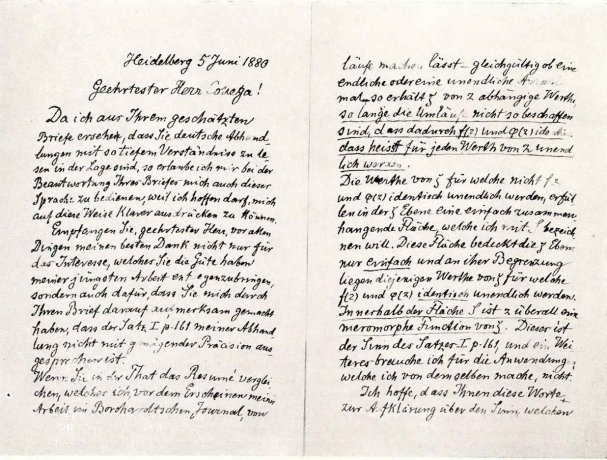 Heidelberg 5 Juni 1880
Geehrtester Herr College!
Da ich aus Ihrem geschätzten
Briefe ersehe, dass Sie deutsche Abhand-
lungen mit so tiefem Verständniss zu le-
sen in der Lage sind, so erlaube ich mir bei der
Beantwortung Ihrer Briefes mich auch dieser
Sprache zu bedienen, weil ich hoffen darf, mich
auf diese Weise klarer ausdrücken zu können.
Empfangen Sie, geehrtester Herr, vor allen
Dingen meinen besten Dank nicht nur für
das Interesse, welches Sie die Güte haben
meiner jüngsten Arbeit entgegenzubringen,
sondern auch dafür, dass Sie mich durch
Ihren Brief darauf aufmerksam gemacht
haben, dass der Satz I p. 161 meiner Abhand
lung nicht mit genügender Präcision aus-
gesprochen ist.
Wenn Sie in der That das Resumé verglei-
chen, welches ich vor dem Erscheinen meiner
Arbeit im Borchardtschen Journal, von
läufe machen lässt – gleichgültig ob eine
endliche oder eine unendliche
mal – so erhält ζ von z abhängige Werthe,
so lange die Umläufe nicht so beschaffen
sind, dass dadurch f(z) und φ(z)
dass heisst für jeden Werth von z unend
lich werden.
Die Werthe von ζ für welche nicht f z
und φ(z) identisch unendlich werden, erfül
len in der ζ Ebene eine einfach zusammen
hangende Fläche, welche ich mit S bezeich
nen will. Diese Fläche bedeckt die ζ Eben
nur einfach und an ihrer Begrenzung
liegen diejenigen Werthe von ζ für welche
f(z) und φ(z) identisch unendlich werden.
Innerhalb der Fläche S ist z überall eine
meromorphe Function von ζ. Dieser ist
der Sinn des Satzes I p. 161, und ein Wei
teres brauche ich für die Anwendung,
welche ich von demselben mache, nicht.
Ich hoffe, dass Ihnen diese Worte,
zur Aufklärung über den Sinn, welchen